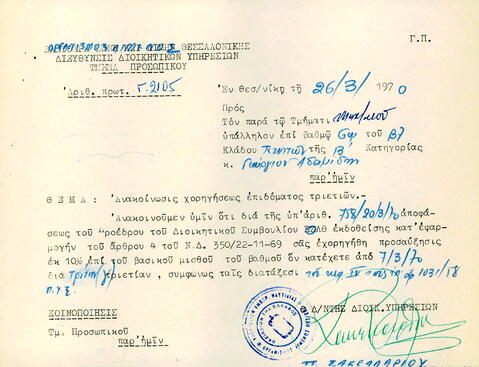 Γ.Π.
ΘΕΣΣΑΛΟΝΙΚΗΣ
ΔΙΕΥΘΥΝΣΙΣ ΔΙΟΙΚΗΤΙΚΩΝ ΥΠΗΡΕΣΙΩΝ
ΤΜΗΜΑ ΠΡΟΣΩΠΙΚΟΥ
Ἀριθ. πρωτ. Γ.2105
Ἐν Θεσ/νίκῃ τῇ 26/3/1970
Πρός
Τόν παρά τῷ Τμήματι
ὑπάλληλον ἐπί βαθμῷ τοῦ Βλ
Κλάδου Τεχνιτῶν τῆς Β΄ Κατηγορίας
κ. Γεώργιον Ἀδαμίδην
παρ'ἡμῖν
ΘΕΜΑ: Ἀνακοίνωσις χορηγήσεως ἐπιδόματος τριετιῶν.-
Ἀνακοινοῦμεν ὑμῖν ὅτι διά τῆς ὑπ'ἀριθ. 758/20/3/70 ἀποφά-
σεως τοῦ Προέδρου τοῦ Διοικητικοῦ Συμβουλίου ἐκδοθείσης κατ'ἐφαρ-
μογήν τοῦ ἄρθρου 4 τοῦ Ν.Δ. 350/22-11-69 σᾶς ἐχορηγήθη προσαύξησις
ἐκ 10% ἐπί τοῦ βασικοῦ μισθοῦ τοῦ βαθμοῦ ὅν κατέχετε ἀπό 7/3/70
διά Τρίτην (γ) τριετίαν, συμφώνως ταῖς διατάξεσι 1031/58
Π.Υ.Σ.
ΚΟΙΝΟΠΟΙΗΣΙΣ
Ὁ Δ/ΝΤΗΣ ΔΙΟΙΚ.ΥΠΗΡΕΣΙΩΝ
Τμ. Προσωπικοῦ
παρ'ἡμῖν
Π. ΣΑΚΕΛΛΑΡΙΟΥ